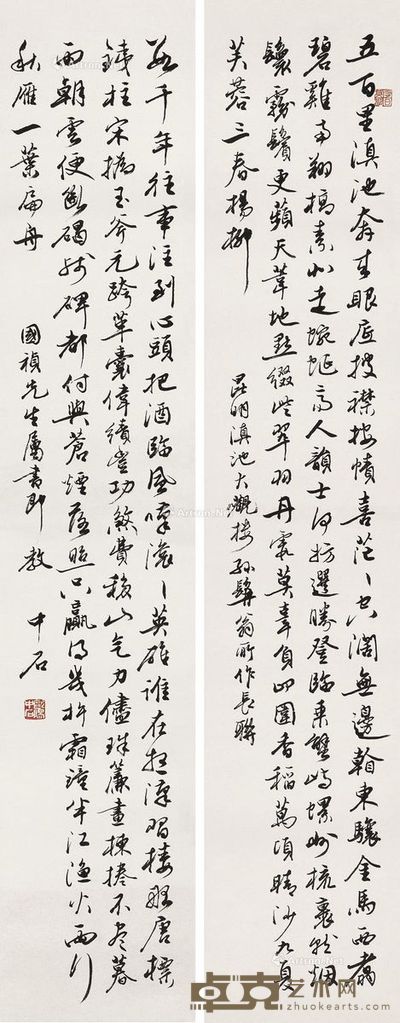 五百里滇池奔來眼底披襟按幘喜茫々空闊無邊看東驤金馬西翥
碧雞南翔縞素北走蜿蜒高人韻士何妨選勝登臨乘蟹嶼螺州梳裹就煙
鬟霧鬢更蘋天葦地點綴些翠羽丹霞莫辜負四圍香稻萬頃晴沙九夏
芙蓉三春楊柳
昆明滇池大觀樓孫髯翁所作長聯
數千年往事注到心頭把酒臨風嘆滾々英雄誰在想漢習樓船唐標
鐵柱宋揮玉斧元跨革囊偉績豐功煞費移山氣力儘珠簾畫棟捲不盡暮
雨朝雲便斷碣殘碑都付與蒼煙落照只贏得幾杵霜鐘半江漁火兩行
秋雁一葉扁舟
國禎先生屬書即教
中石
卓克艺术网
zhuokearts.com